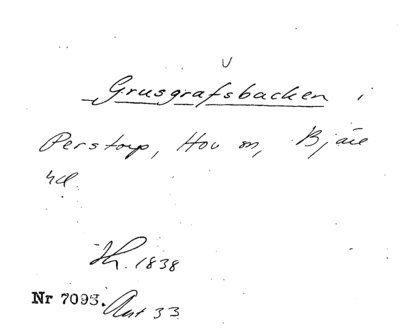 U
Grusgrafsbacken i
Perstorp, Hov sn, Bjäre
hd.
Jh. 1838
Nr 7093. Akt 33